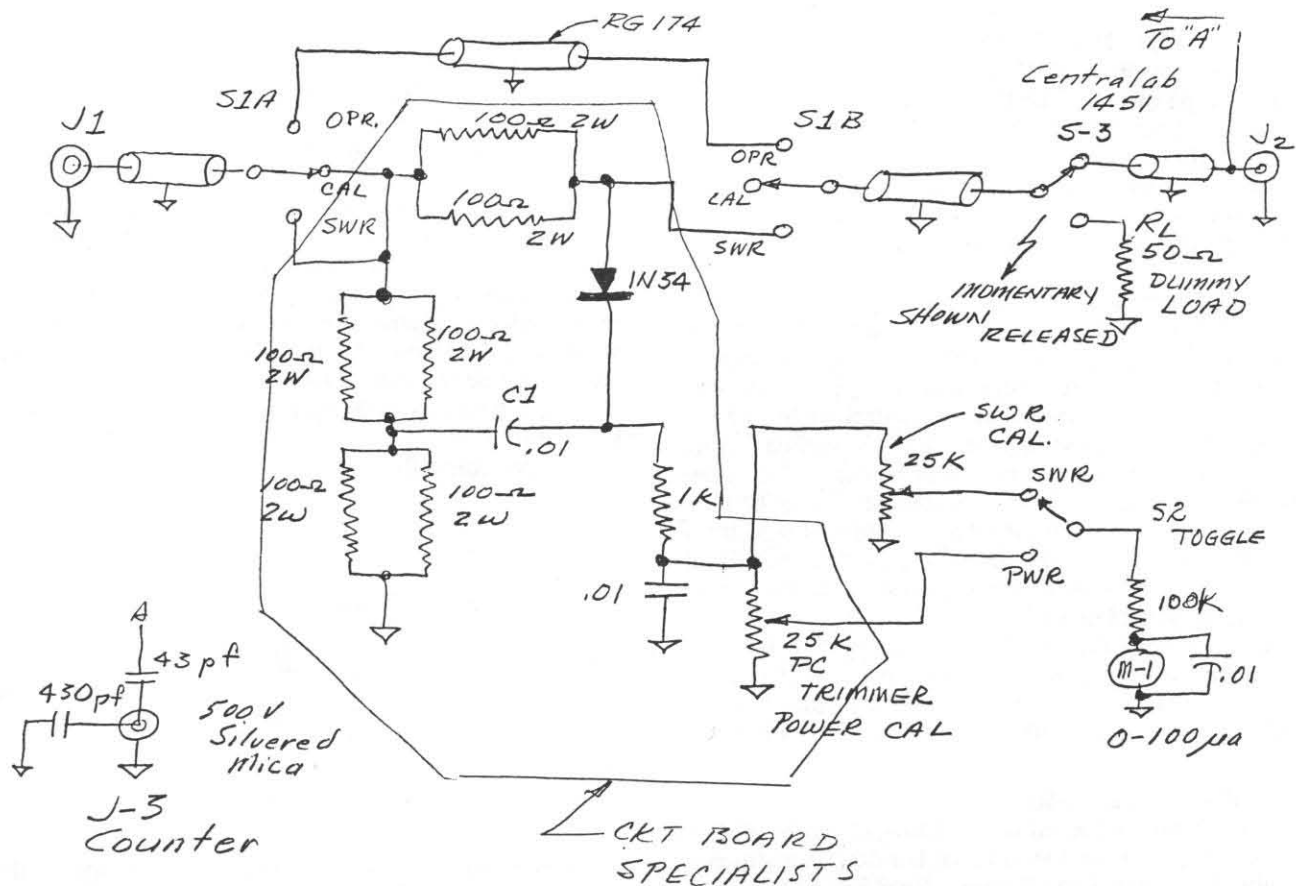 RG 174
To "A"
Centralab
1451
S1A
S1B
S-3
J1
J2
OPR.
100Ω 2W
OPR
CAL
CAL
100Ω
2W
SWR
SWR
RL
50Ω
DUMMY
LOAD
1N34
MOMENTARY
SHOWN
RELEASED
100Ω
2W
100Ω
2W
C1
.01
SWR
CAL.
25K
SWR
100Ω
2W
100Ω
2W
1K
S2
TOGGLE
PWR
.01
25K
PC
TRIMMER
POWER CAL
100K
M-1
.01
0-100μa
A
43pf
430pf
500V
Silvered
Mica
J-3
Counter
CKT BOARD
SPECIALISTS